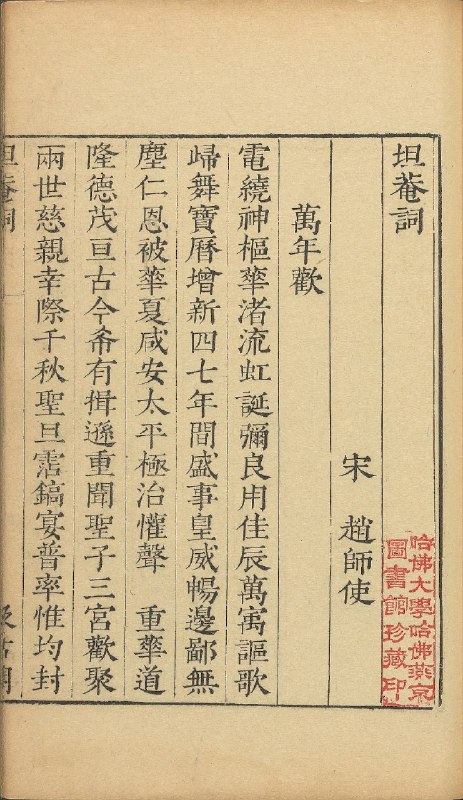 坦菴詞
宋　趙師使
萬年歡
電繞神樞華渚流虹誕彌良用佳辰萬㝢謳歌
歸舞寶曆增新四七年間盛事皇威暢邊鄙無
塵仁恩被華夏咸安太平極治懽聲　重華道
隆德茂亘古今希有揖遜重聞聖子三宮歡聚
兩世慈親幸際千秋聖旦霑鎬宴普率惟均封
坦菴詞
哈佛大學哈佛燕京
圖書館珍藏印